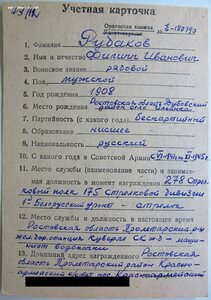 Учетная карточка
Орденская книжка З-180793
Удостоверение
1. Фамилия Рубаков
2. Имя и отчество Филипп Иванович
3. Воинское звание рядовой
4. Пол мужской
5. Год рождения 1908
6. Место рождения Ростовская область Дубовский
район село
7. Партийность (с какого года) беспартийный
8. Образование низшее
9. Национальность русский
10. С какого года в Советской Армии
11. Место службы (наименование части) и занимаемая в момент награждения 278 Стрел-
ковый полк 175 Стрелковой Дивизии
1й Белорусский фронт - стрелок
12. Место службы и должность в настоящее время
Ростовская область Пролетарский р-н
жел. дор. станция Куберле СК ж.д -
13. Домашний адрес награжденного Ростовская
область Пролетарский район Красно-
армейский